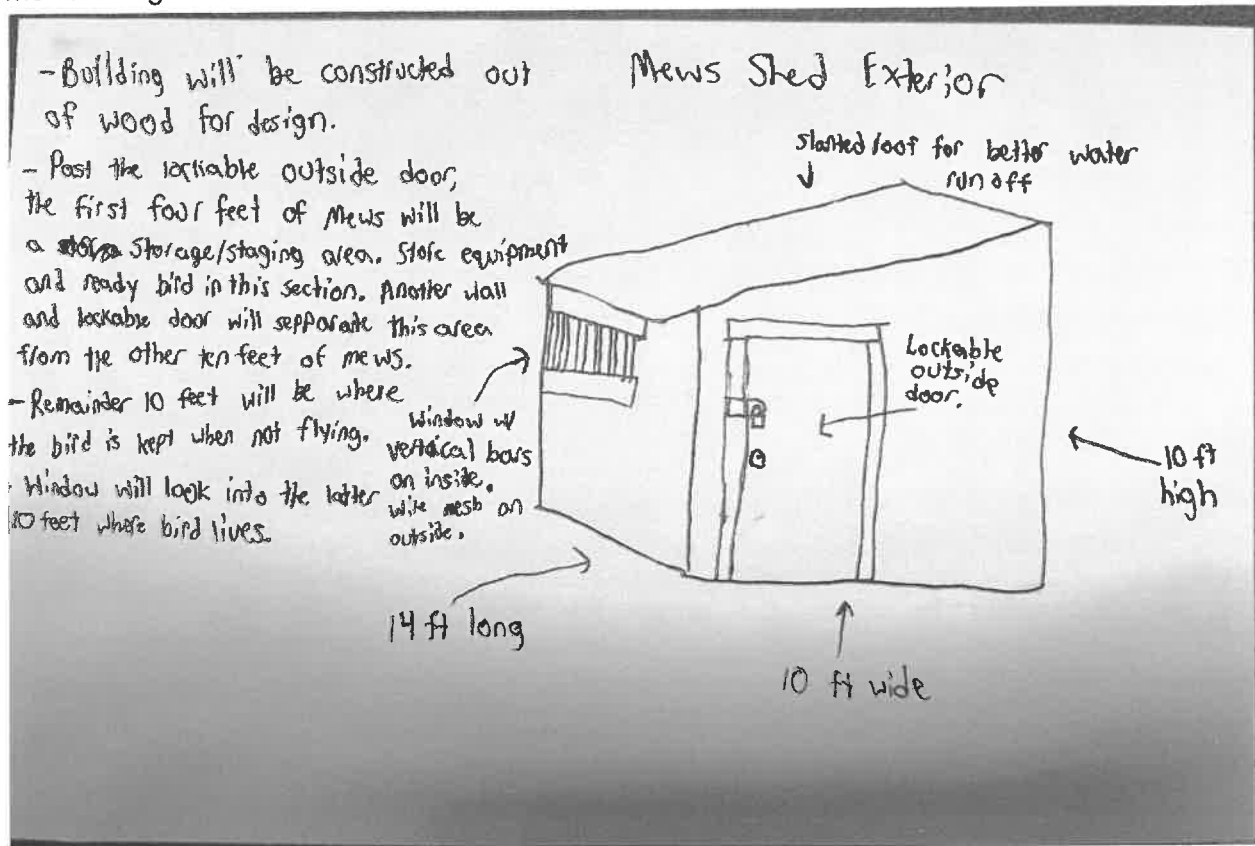 - Building will be constructed out
of wood for design.
- Past the lockable outside door,
the first four feet of Mews will be
a Storage/staging area. Store equipment
and ready bird in this section. Another wall
and lockable door will sepparate this area
from the other ten feet of mews.
- Remainder 10 feet will be where
the bird is kept when not flying.
- Window will look into the latter
10 feet where bird lives.
Mews Shed Exterior
slanted roof for better water
run off
Window w/
vertical bars
on inside.
wire mesh on
outside.
Lockable
outside
door.
10 ft
high
14 ft long
10 ft wide